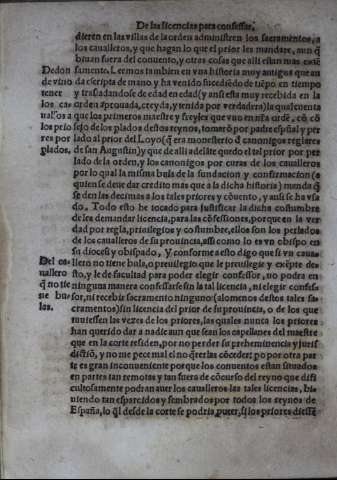 De las licencias para confessar,
dieren en las villas de la orden administren los sacramentos, a
los caualleros, y que hagan lo que el prior les mandare, aun q̃
biuan fuera del conuento, y otras cosas que alli estan mas estẽ
samente. Leemos tambien en vna historia muy antigua que an
da escripta de mano y ha venido sucediẽdo de tiẽpo en tiempo
y trasladandose de edad en edad (y aun esta muy recebida en la
orden aprouada, creyda, y tenida por verdadera) la qual cuenta
que los primeros maestre y freyles que vuo en nr̃a ordẽ, cõ cõ
sejo de los plados destos reynos, tomarõ por padre espñal y per
lado al prior del Loyo (q̃ era monesterio d̃ canonigos reglares
de san Augustin) y que de alli adelãte quedo el tal prior por per
lado de la orden, y los canonigos por curas de los caualleros
por lo qual la misma bula de la fundacion y confirmacion (a
quien se deue dar credito mas que a la dicha historia) manda q̃
se den las decimas a los tales priores y cõuento, y aun se ha vsa
do. Todo esto he tocado para justificar la dicha costumbre
de les demandar licencia, para las cõfessiones, porque en la ver
dad por regla, priuilegios y costumbre, ellos son los perlados
de los caualleros de su prouincia, assi como lo es vn obispo en
su diocesis y obispado, y conforme a esto digo que si vn caua-
llero no tiene bula, o preuilegio que le preuilegie y exẽpte de-
sto, y le de facultad para poder elegir confessor, no podra en
ninguna manera confessarse sin la tal licencia, ni elegir confes-
sor, ni recebir sacramento ninguno (alomenos destos tales sa-
cramentos) sin licencia del prior de su prouincia, o de los que
tuuiessen las vezes de los priores, las quales nunca los priores
han querido dar a nadie aun que sean los capellanes del maestre
que en la corte residen, por no perder su preheminencia y jurif
dictiõ, y no me pece mal el no q̃rer las cõceder: po por otra par
te es gran inconueniente porque los conuentos estan situados
en partes tan remotas y tan fuera de cõcurso del reyno que difi
cultosamente podran auer los caualleros las tales licencias, bi-
uiendo tan esparzidos y sembrados por todos los reynos de
España, lo q̃l desde la corte se podria, puer, si los priores diessẽ
De don
de vino
tener
los ca-
uallos a
los prio
res por
plados.
Del ca-
uallero
q̃ no tie
ne bu-
la.